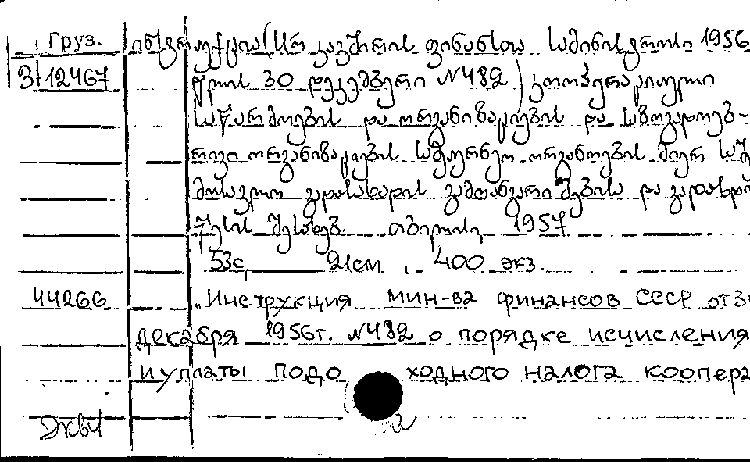 Груз. ინსტრუქცია (სსრ კავშირის ფინანსთა სამინისტროსი 1956
3 12467 წლის 30 დეკემბერი №482) კოოპერაციული
საწარმოების და ორგანიზაციების და საზოგადოებ-
რივი ორგანიზაციების სამეურნეო ორგანოების მიერ სა
მოსავლო გადასახადის გამოანგარიშების და გადახდი
წესის შესახებ. თბილისი, 1957
53с, 21см, 400 экз
44266 "Инструкция мин-ва финансов СССР от 3
декабря 1956г. №482 о порядке исчисления
и уплаты подоходного налога коопера